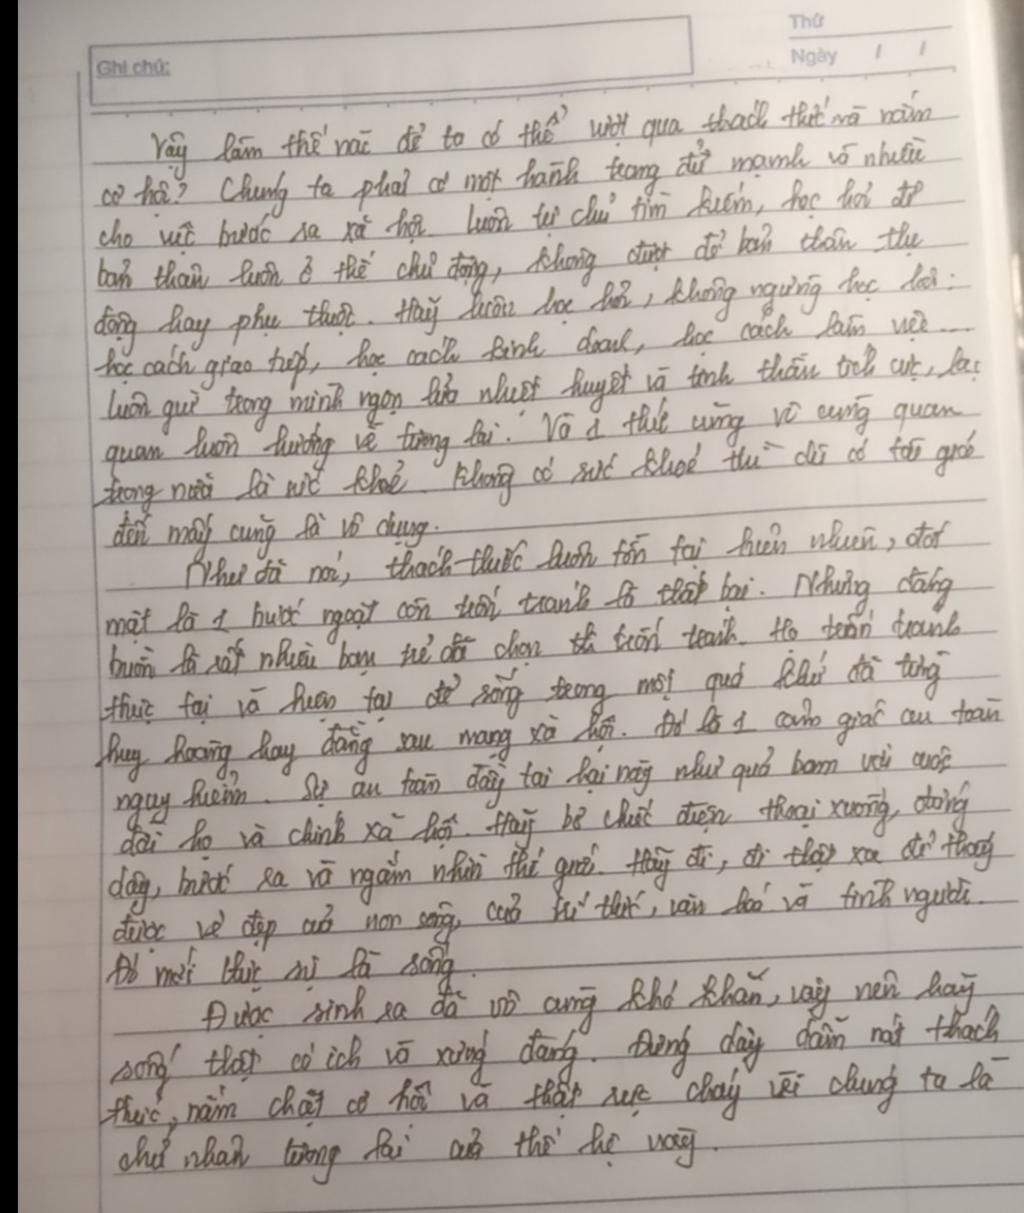 Ghi chú:
Thứ
Ngày / /
Vậy làm thế nào để ta có thể vượt qua thách thức và nắm
cơ hội? Chúng ta phải có một hành trang đủ mạnh và nhiều
cho việc bước ra xã hội. Luôn tự chủ tìm kiếm, học hỏi để
bản thân luôn ở thế chủ động, không được để bản thân thụ
động hay phụ thuộc. Hãy luôn học hỏi, không ngừng học hỏi:
học cách giao tiếp, học cách kinh doanh, học cách làm việc...
luôn giữ trong mình ngọn lửa nhiệt huyết và tinh thần tích cực, lạc
quan luôn hướng về tương lai. Và 1 thức cũng vô cùng quan
trọng nữa là sức khoẻ. Không có sức khoẻ thì dù có tài giỏi
đến mấy cũng là vô dụng.
Như đã nói, thách thức luôn tồn tại hiển nhiên, đối
mặt là 1 bước ngoặt còn trốn tránh là thất bại. Nhưng đáng
buồn là rất nhiều bạn trẻ đã chọn trốn tránh. Họ trốn tránh
thực tại và hiện tại để sống trong một quá khứ đã từng
huy hoàng hay đằng sau mạng xã hội. Đó là 1 cảm giác an toàn
nguy hiểm. Sự an toàn đầy tai hại này như quả bom với cuộc
đời họ và chính xã hội. Hãy bỏ chiếc điện thoại xuống, đứng
dậy, bước ra và ngắm nhìn thế giới. Hãy đi, đi thật xa để thấy
được vẻ đẹp của non sông, của tri thức, văn hoá và tình người.
Đó mới thực sự là sống.
Được sinh ra đã vô cùng khó khăn, vậy nên hãy
sống thật có ích và xứng đáng. Đứng dậy đâm nát thách
thức, nắm chặt cơ hội và thật sực cháy vì chúng ta là
chủ nhân tương lai của thế hệ này.